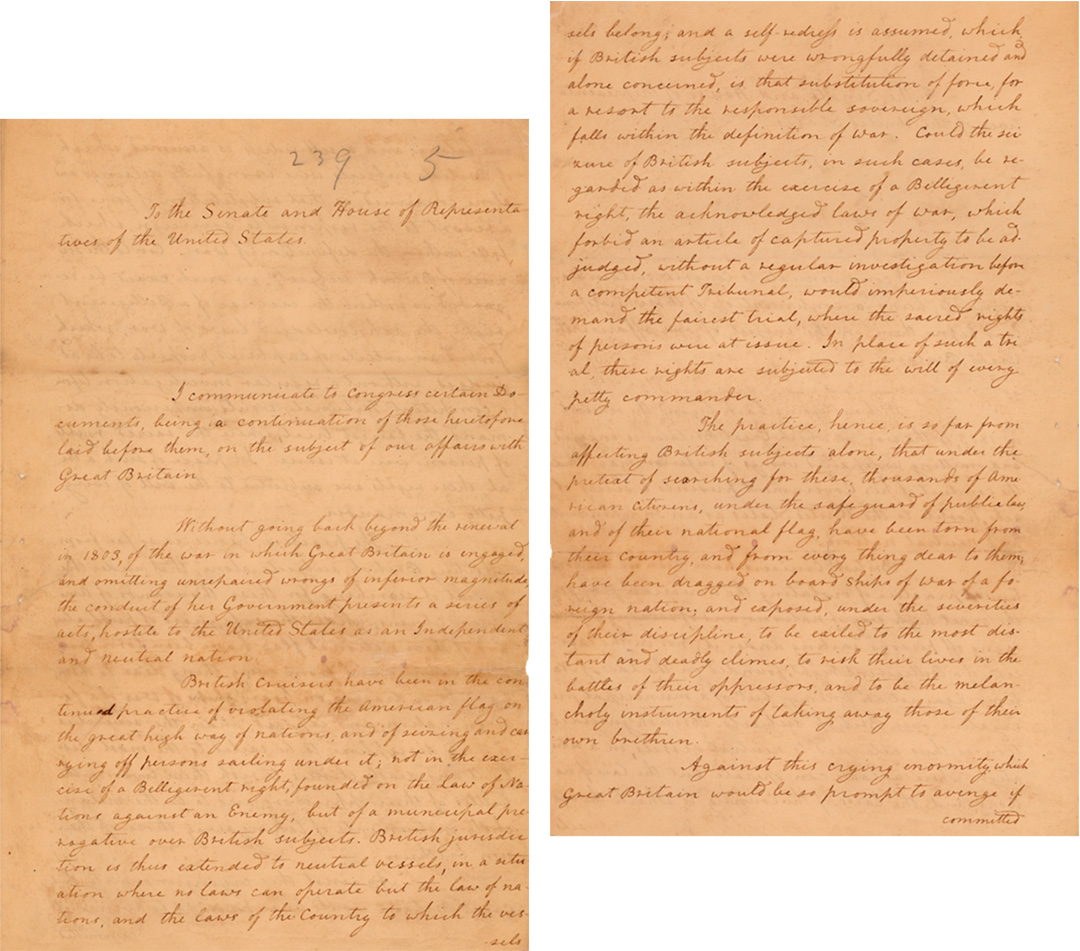 239 5
To the Senate and House of Representa-
tives of the United States.
I communicate to Congress certain Do-
cuments, being a continuation of those heretofore
laid before them, on the subject of our affairs with
Great Britain
Without going back beyond the renewal
in 1803, of the war in which Great Britain is engaged,
and omitting unrepaired wrongs of inferior magnitude,
the conduct of her Government presents a series of
acts, hostile to the United States as an Independent
and neutral nation.
British cruisers have been in the con
tinued practice of violating the American flag on
the great high way of nations, and of seizing and car
rying off persons sailing under it; not in the exer-
cise of a Belligerent right, founded on the law of Na
tions against an Enemy, but of a municipal pre
rogative over British subjects. British jurisdic
tion is thus extended to neutral vessels, in a situ
ation where no laws can operate but the law of na-
tions, and the laws of the Country to which the ves-
sels
sels belong; and a self-redress is assumed, which,
if British subjects were wrongfully detained and
alone concerned, is that substitution of force, for
a resort to the responsible sovereign, which
falls within the definition of war. Could the sei
zure of British subjects, in such cases, be re-
garded as within the exercise of a Belligerent
right, the acknowledged laws of war, which
forbid an article of captured property to be ad-
judged, without a regular investigation before
a competent Tribunal, would imperiously de-
mand the fairest trial, where the sacred rights
of persons were at issue. In place of such a tri
al, these rights are subjected to the will of every
petty commander.
The practice, hence, is so far from
affecting British subjects alone, that under the
pretext of searching for these, thousands of Ame
rican Citizens, under the safeguard of public law,
and of their national flag, have been torn from
their country, and from every thing dear to them;
have been dragged on board ships of war of a fo-
reign nation; and exposed, under the severities
of their discipline, to be exiled to the most dis-
tant and deadly climes, to risk their lives in the
battles of their oppressors, and to be the melan-
choly instruments of taking away those of their
own brethren.
Against this crying enormity, which
Great Britain would be so prompt to avenge if
committed